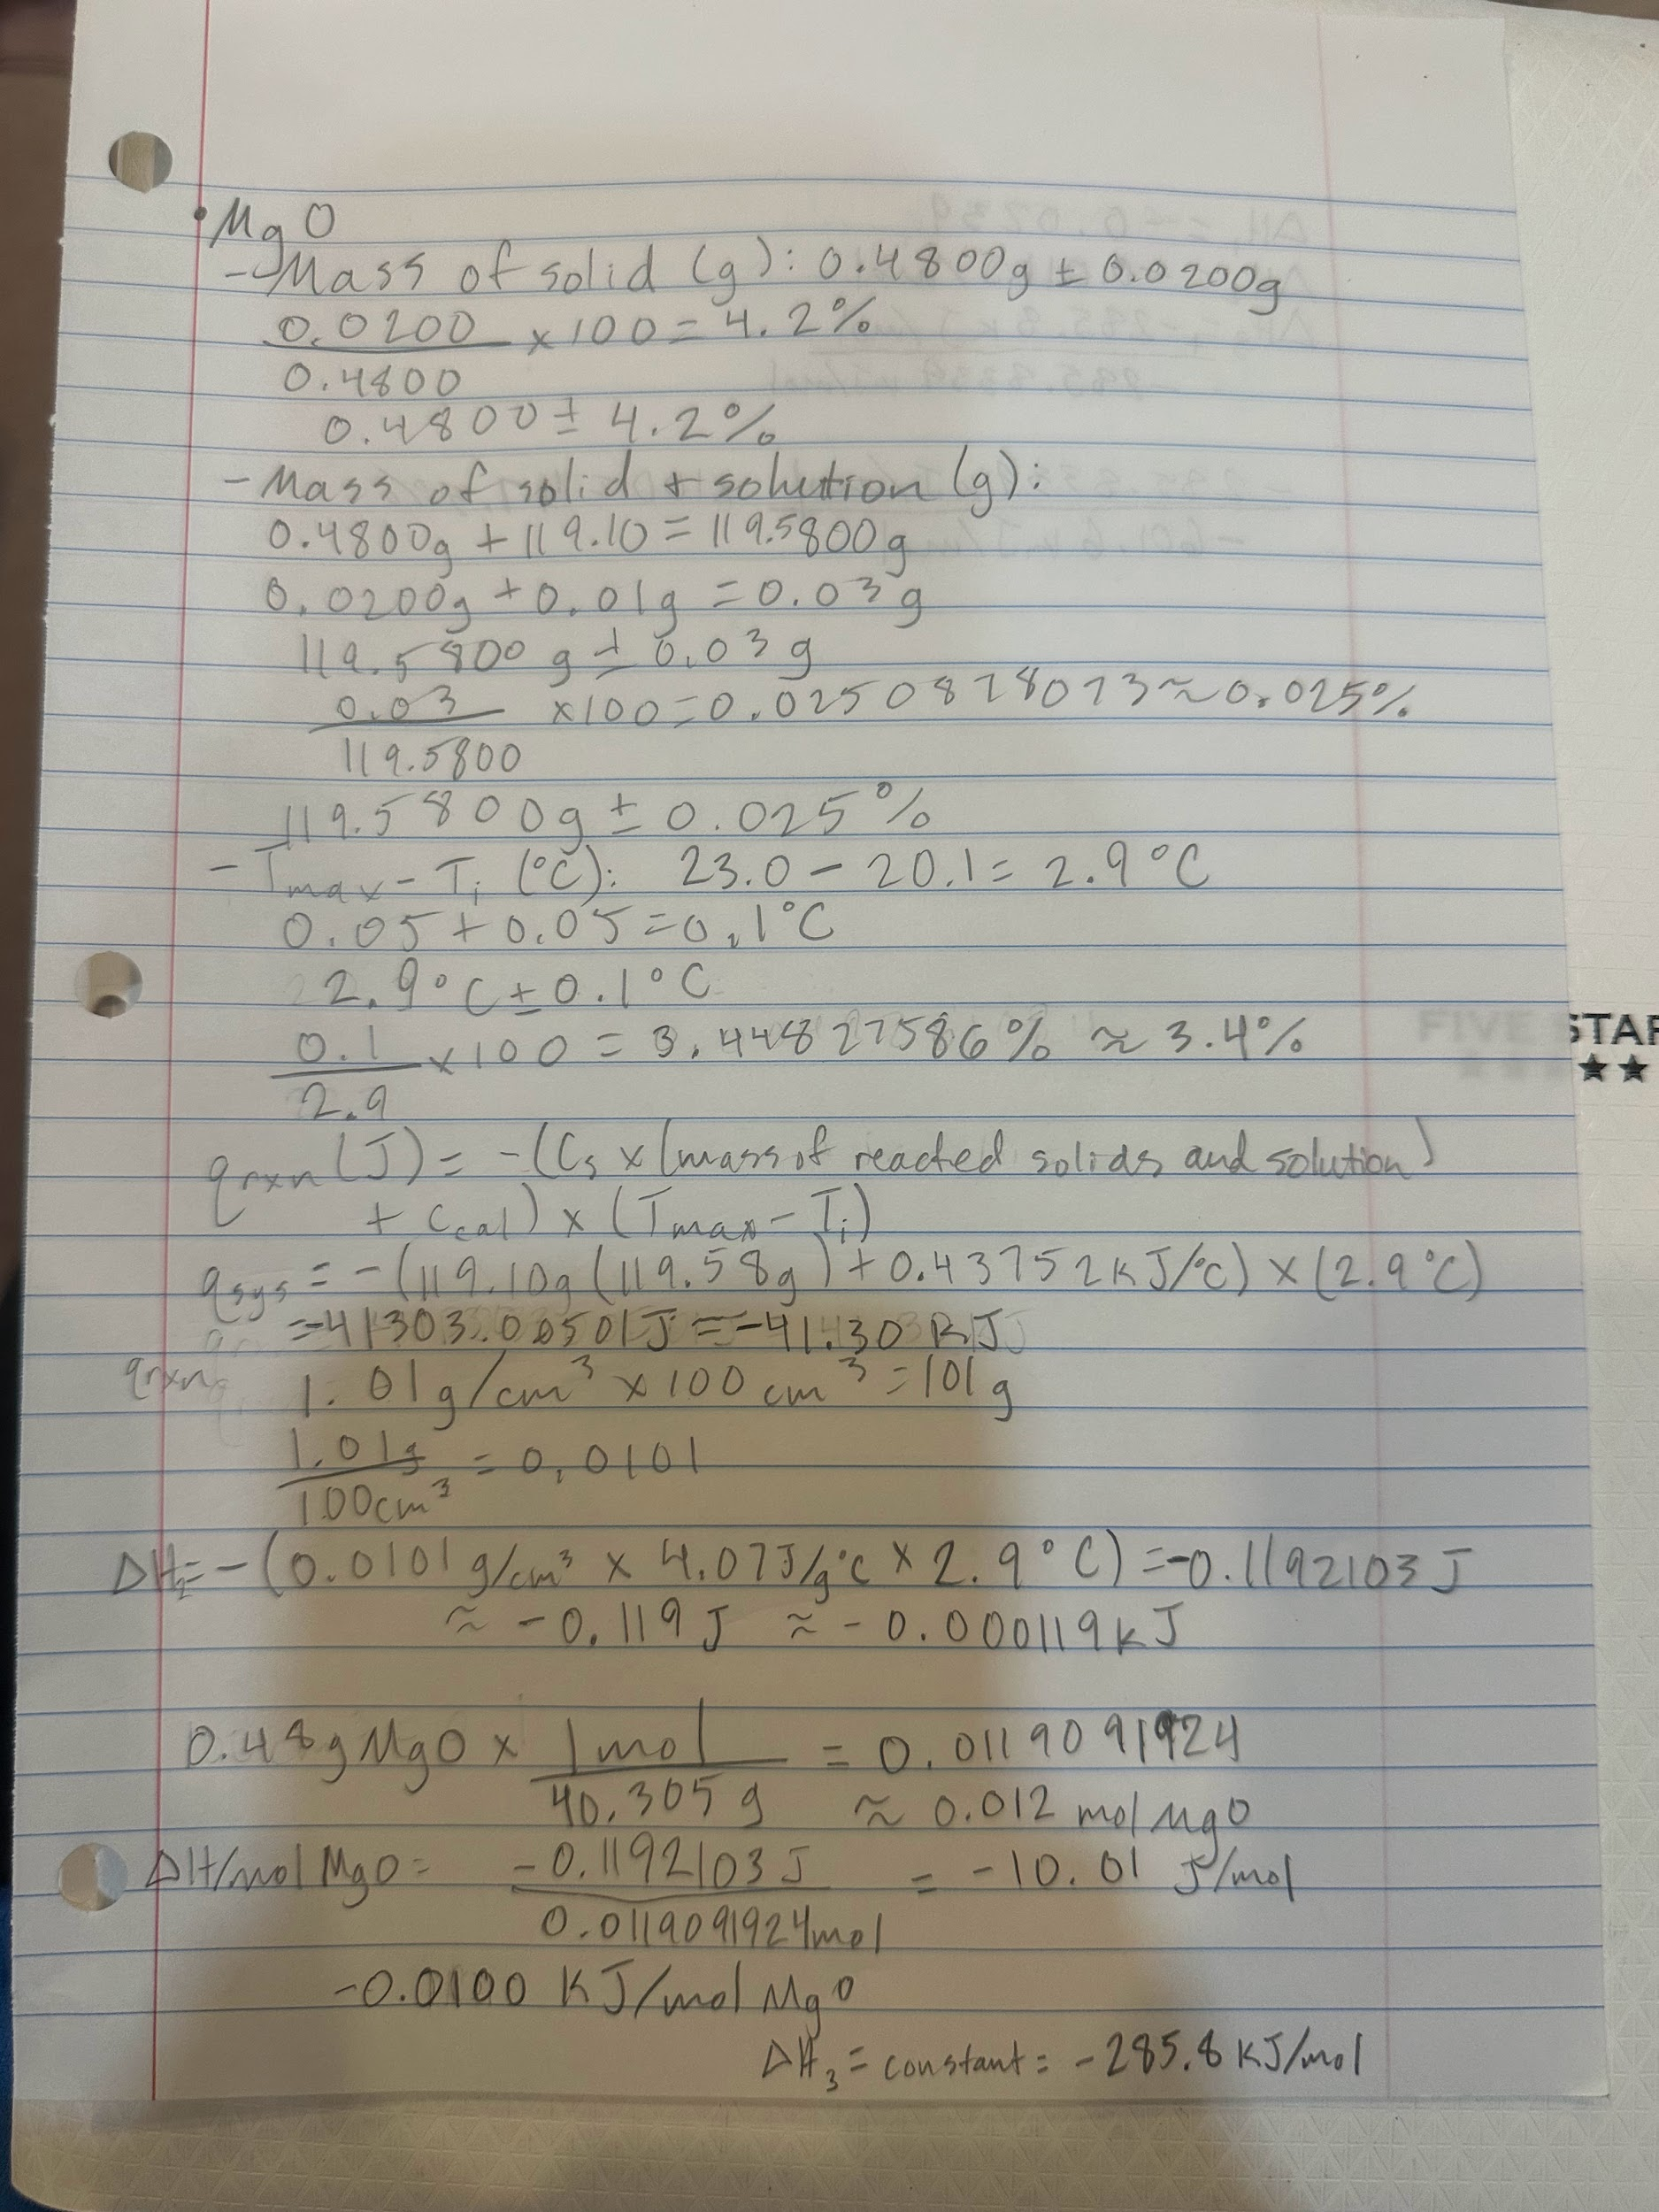 • MgO
- Mass of solid (g): 0.4800g ± 0.0200g
0.0200 × 100 = 4.2%
0.4800
0.4800 ± 4.2%
- Mass of solid + solution (g):
0.4800g + 119.10 = 119.5800g
0.0200g + 0.01g = 0.03g
119.5800 g ± 0.03g
0.03 ×100=0.0250878073≈0.025%
119.5800
119.5800g ± 0.025%
- Tmax - Ti (°C): 23.0 - 20.1 = 2.9°C
0.05 + 0.05 = 0.1°C
2.9°C ± 0.1°C
0.1 × 100 = 3.44827586% ≈ 3.4%
2.9
FIVE STAR
qrxn (J) = -(Cs × (mass of reacted solids and solution)
+ Ccal) × (Tmax - Ti)
qsys = -(119.10g (119.58g) + 0.43752kJ/°C) × (2.9°C)
=-41303.00501J = -41.30 KJ
qrxn
1.01g/cm³ × 100 cm³ = 101g
1.01g = 0.0101
100cm³
ΔH₂= -(0.0101 g/cm³ × 4.07J/g°C × 2.9°C) = -0.1192103J
≈ -0.119J ≈ -0.000119kJ
0.48g MgO × 1mol = 0.0119091924
40.305g ≈ 0.012 mol MgO
ΔH/mol MgO = -0.1192103J = -10.01 J/mol
0.0119091924mol
-0.0100 KJ/mol MgO
ΔH₃ = constant = -285.8 KJ/mol